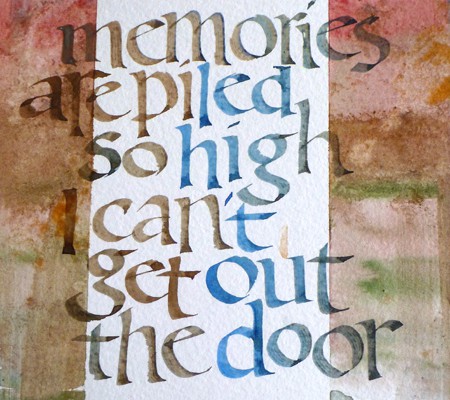 memories
are piled
so high
I can't
get out
the door